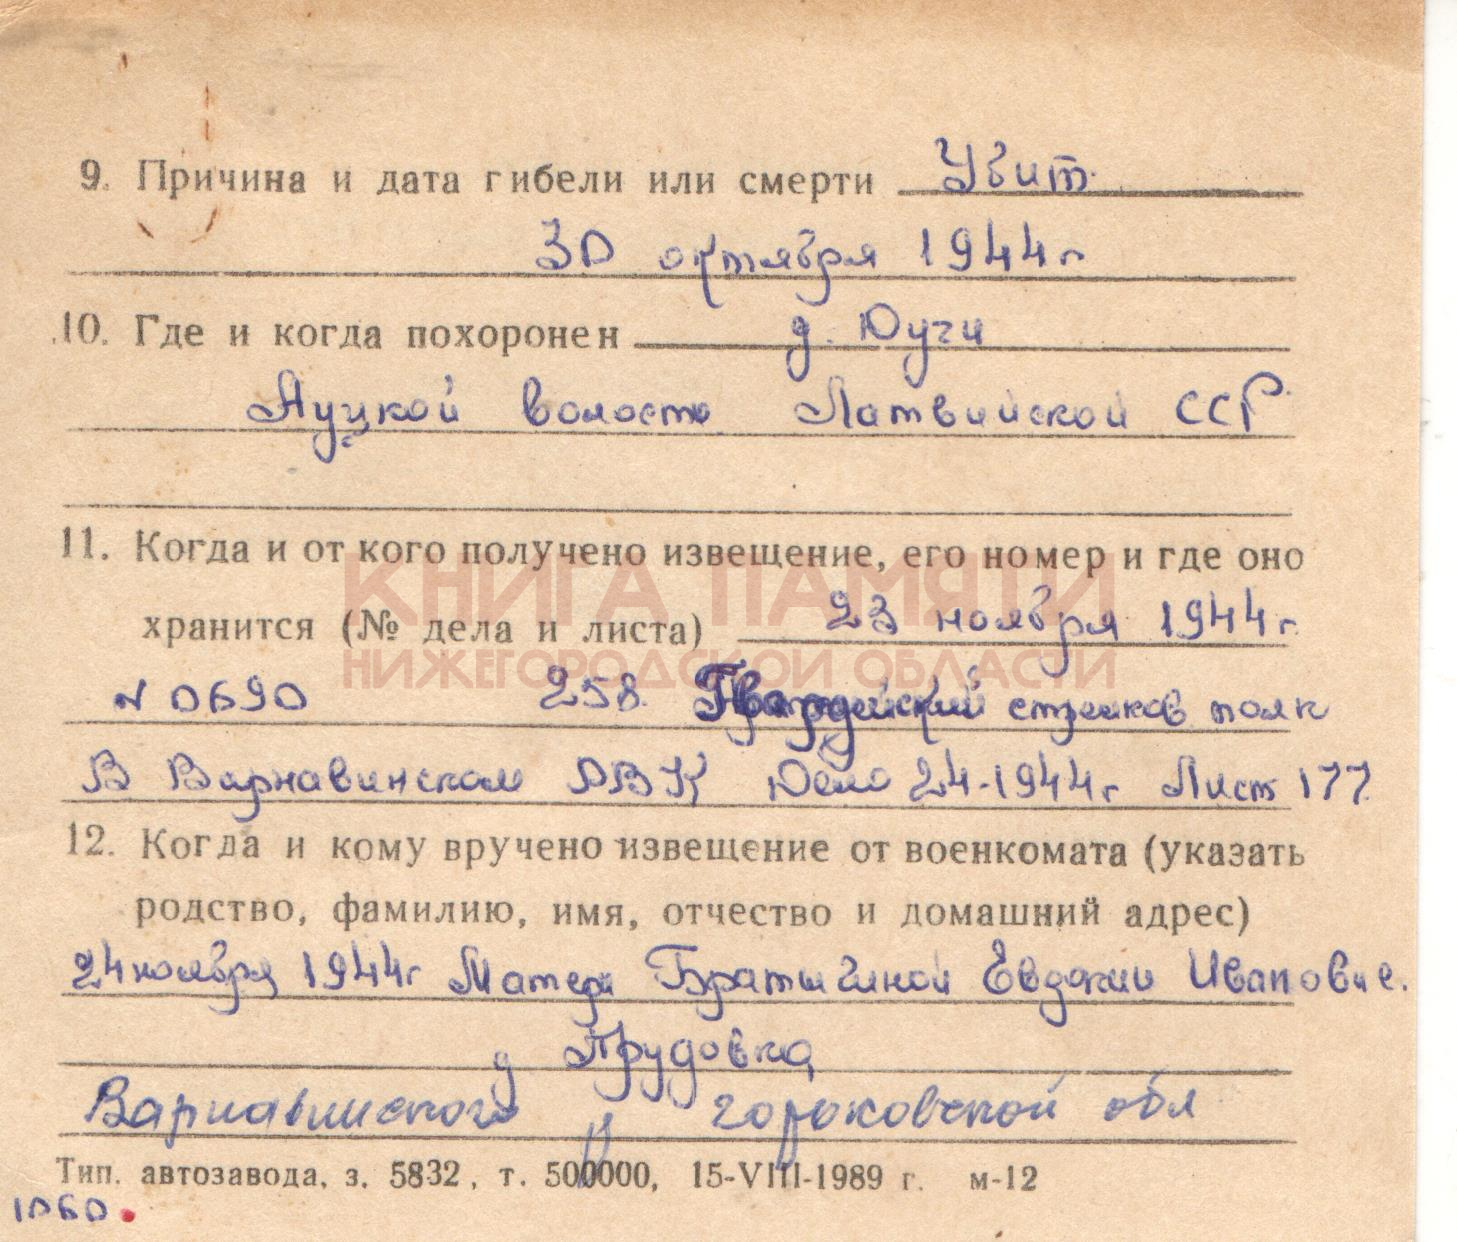 9. Причина и дата гибели или смерти Убит.
30 октября 1944 г
10. Где и когда похоронен д. Юуги
Ауцкой волости Латвийской ССР.
11. Когда и от кого получено извещение, его номер и где оно
КНИГА ПАМЯТИ
хранится (№ дела и листа) 23 ноября 1944 г.
НИЖЕГОРОДСКОЙ ОБЛАСТИ
N 0690 258. Гвардейский стрелков полк
В Варнавинском РВК Дело 24-1944 г Лист 177.
12. Когда и кому вручено извещение от военкомата (указать
родство, фамилию, имя, отчество и домашний адрес)
24 ноября 1944 г Матери Братыгиной Евдокии Ивановне.
д Прудовка
Варнавинского р горьковской обл
Тип. автозавода, з. 5832, т. 500000, 15-VIII-1989 г. м-12
1060.